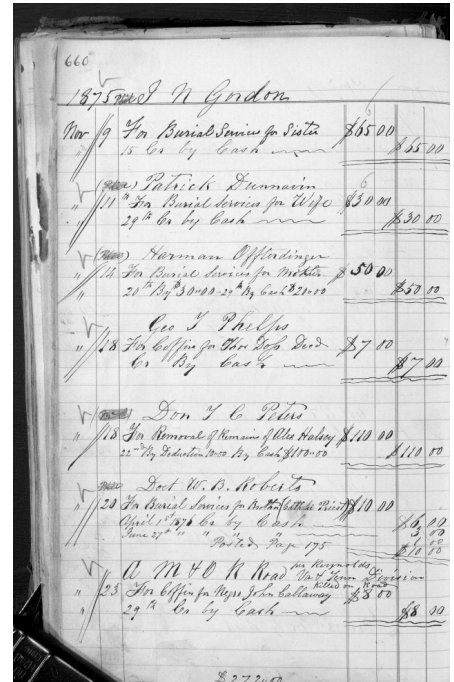 660
1875 J N Gordon
Nov 9 For Burial Services for Sister $65 00
" 15 Cr by Cash $65 00
Patrick Dunnavin
" 11th For Burial Services for Wife $30 00
" 29th Cr by Cash $30 00
Harman Offterdinger
" 14 For Burial Services for $50 00
" 20th By $30.00 - 29th By Cash $20.00 $50 00
Geo T Phelps
" 18 For Coffin for Thos Doss Decd $7 00
Cr By Cash $7 00
Don T C Peters
" 18 For Removal of Remains of Alex Halsey $110 00
22nd By Deduction 10.00 By Cash $100.00 $110 00
Doct W. B. Roberts
" 20 For Burial Services for Brother (Catholic Priest) $10 00
April 1st 1876 Cr by Cash $6 00
June 27th " " " 3 00
Posted Page 175 $10 00
A M & O R Road per Reynolds Va & Tenn Division
" 25 For Coffin for Negro John Callaway Killed on Road $8 00
" 29th Cr by Cash $8 00
$272.00